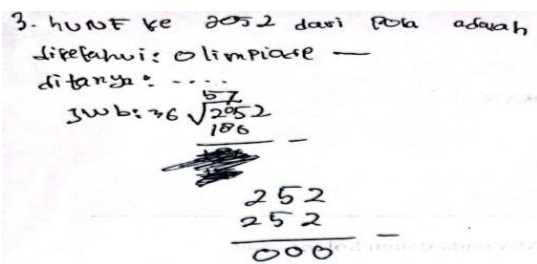 3. huruf ke 2052 dari pola adalah
diketahui: olimpiade —
ditanya: ....
Jwb: 36 √2052
57
180
252
252
000